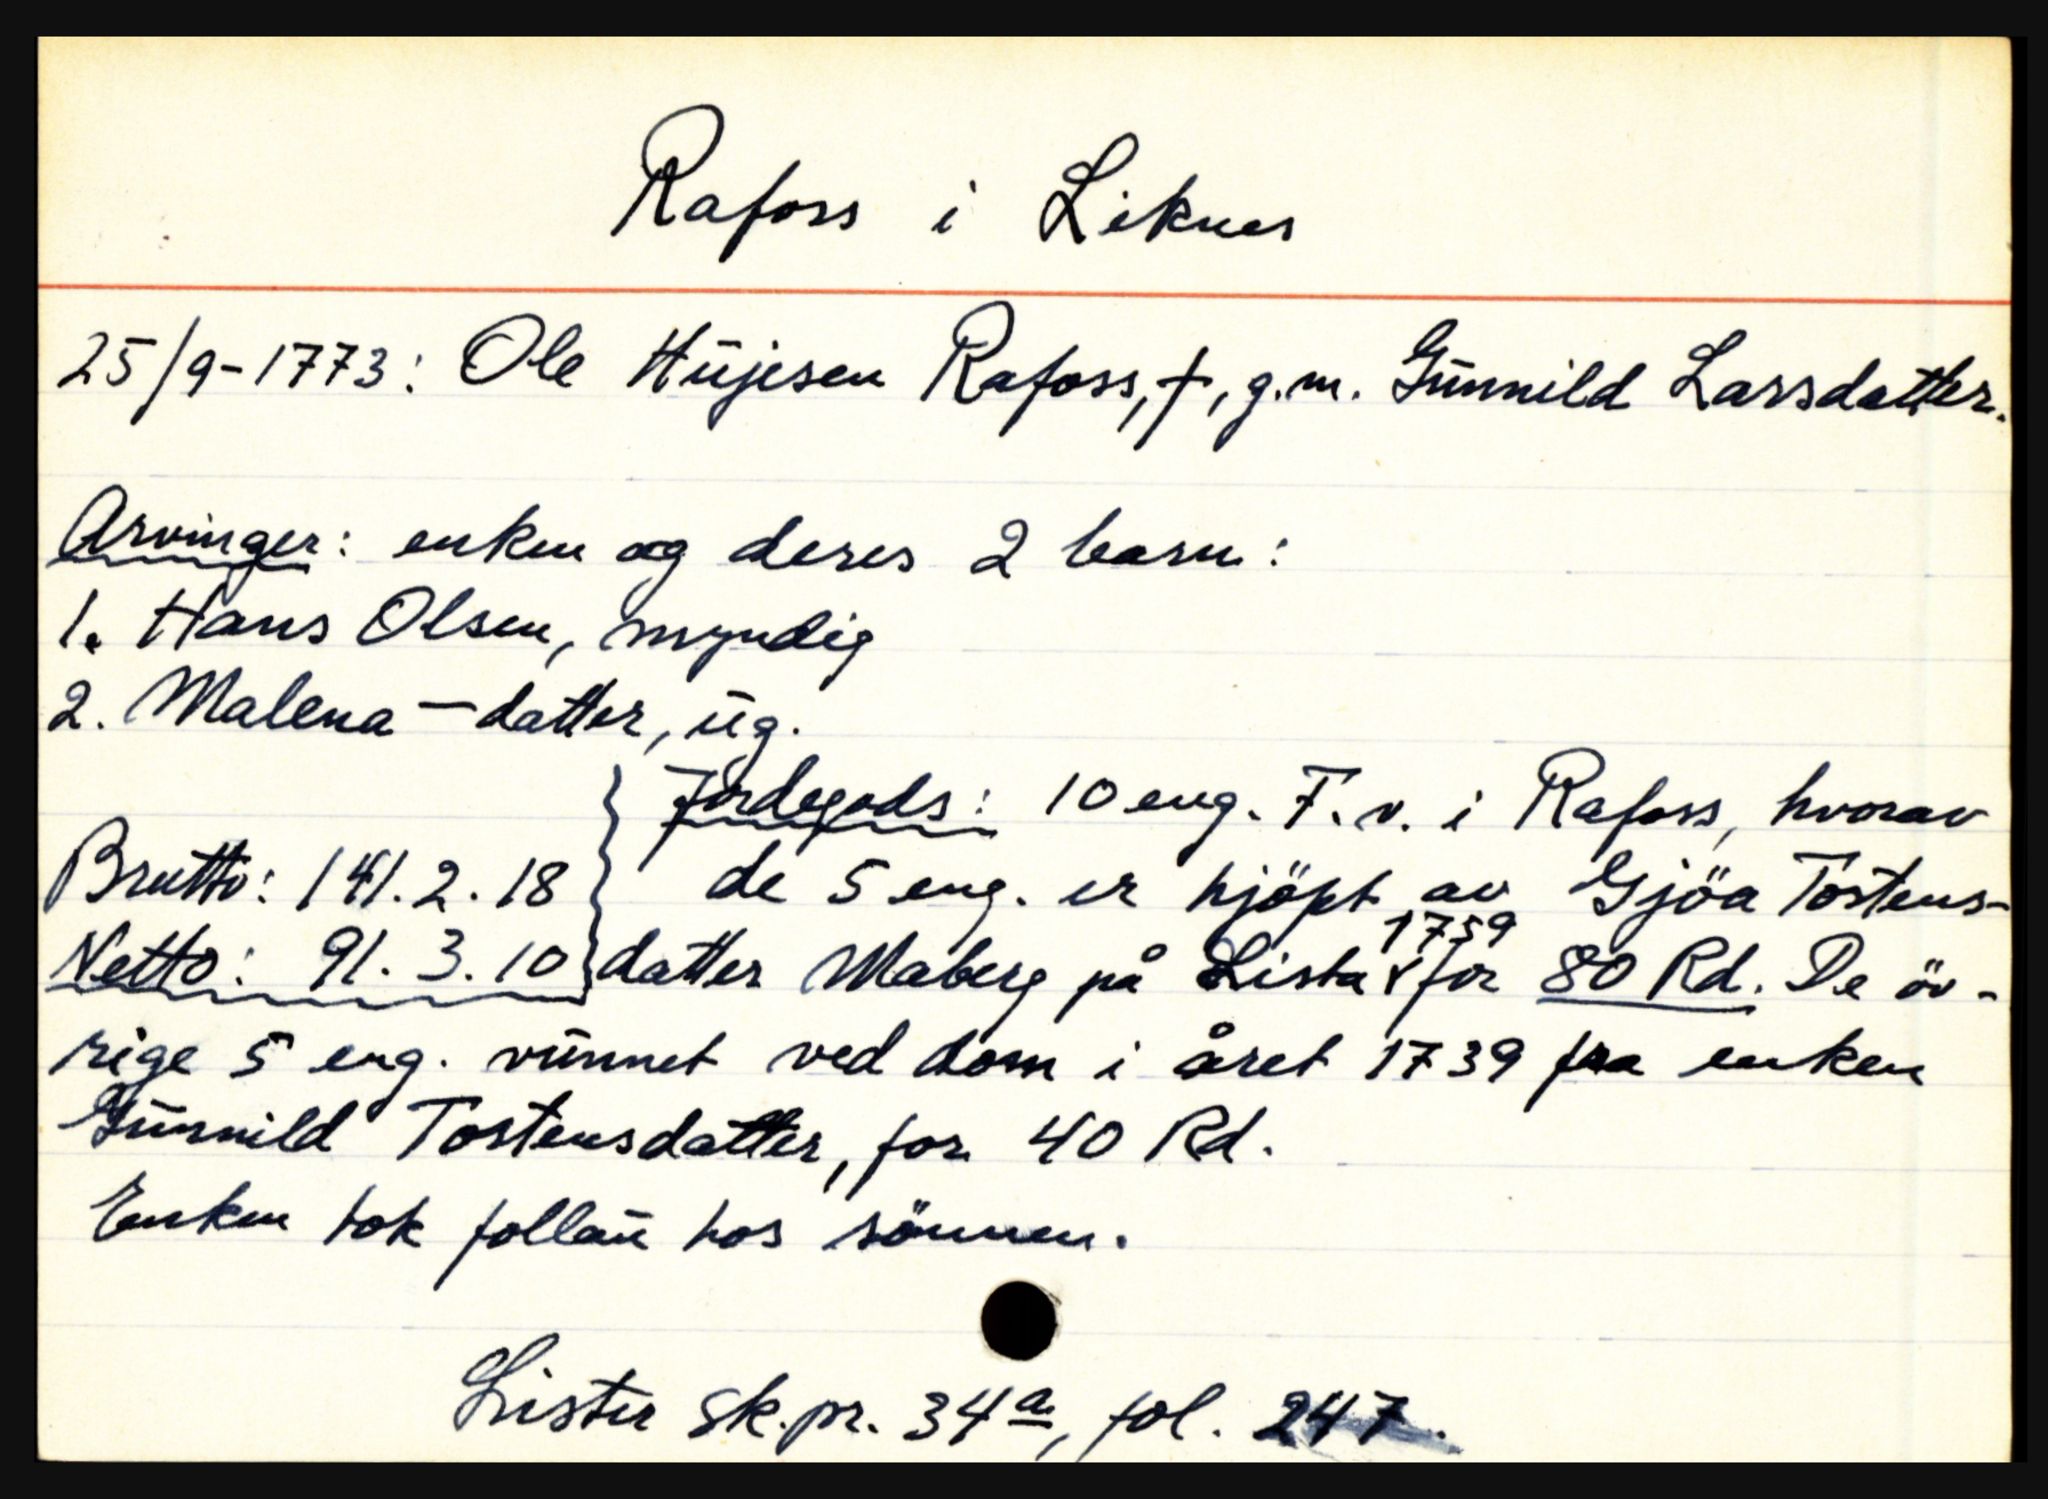 Rafoss i Liknes
25/9-1773: Ole Hujesen Rafoss, †, g.m. Gunnild Larsdatter.
Arvinger: enken og deres 2 barn:
1. Hans Olsen, myndig
2. Malena — datter, ug.
Jordegods: 10 eng. F.v. i Rafoss, hvorav
Brutto: 141.2.18 de 5 eng. er kjöpt av Gjöa Tostens-
Netto: 91.3.10 datter Maberg på Lista 1759 for 80 Rd. De öv-
rige 5 eng. vunnet ved dom i året 1739 fra enken
Gunnild Tostensdatter, for 40 Rd.
Enken tok follau hos sönnen.
Lister sk.pr. 34a, fol. 247.